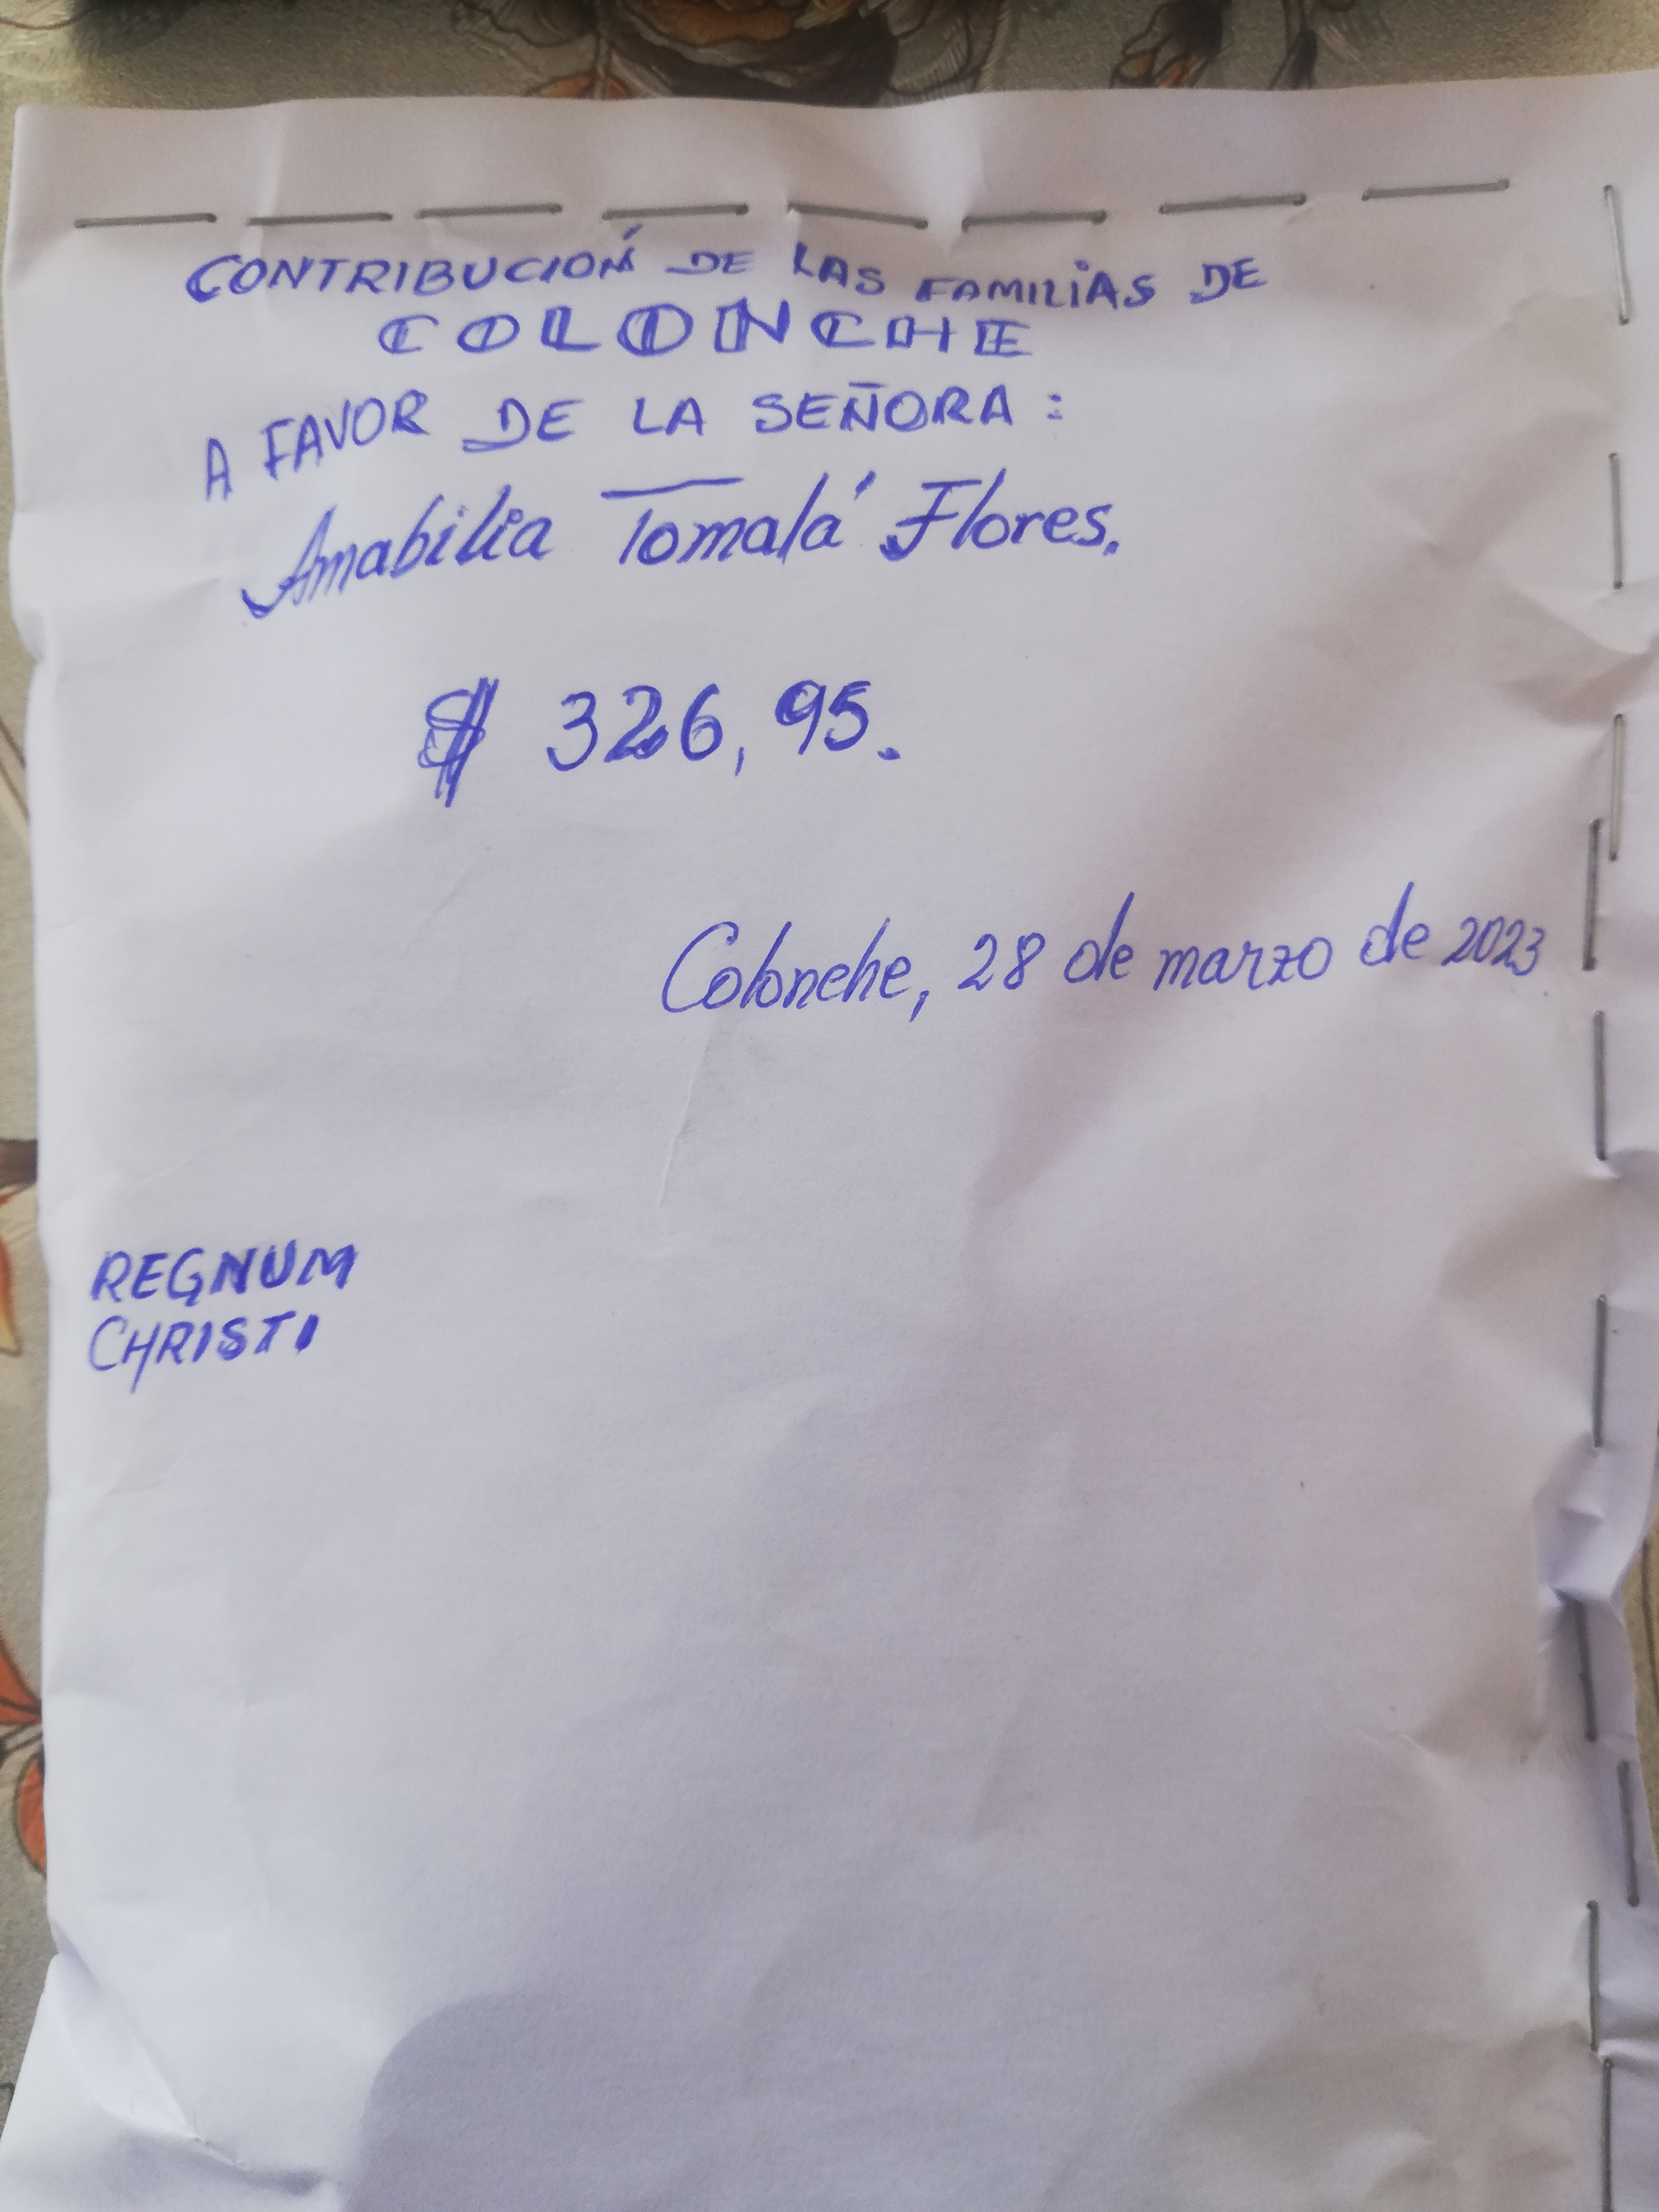 CONTRIBUCIÓN DE LAS FAMILIAS DE
COLONCHE
A FAVOR DE LA SEÑORA:
Amabilia Tomalá Flores.
$ 326,95.
Colonche, 28 de marzo de 2023
REGNUM
CHRISTI